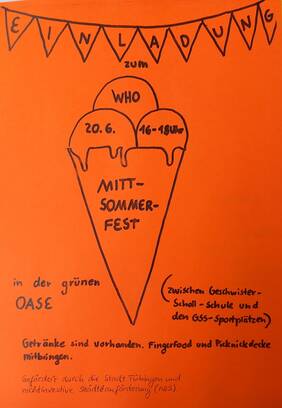 EINLADUNG
zum
WHO
20.6. 16-18Uhr
MITT-
SOMMER-
FEST
in der grünen
OASE
(zwischen Geschwister-
Scholl-Schule und
den GSS-Sportplätzen)
Getränke sind vorhanden. Fingerfood und Picknickdecke
mitbringen.
Gefördert durch die Stadt Tübingen und
nichtinvestive Städtebauförderung (NIS).